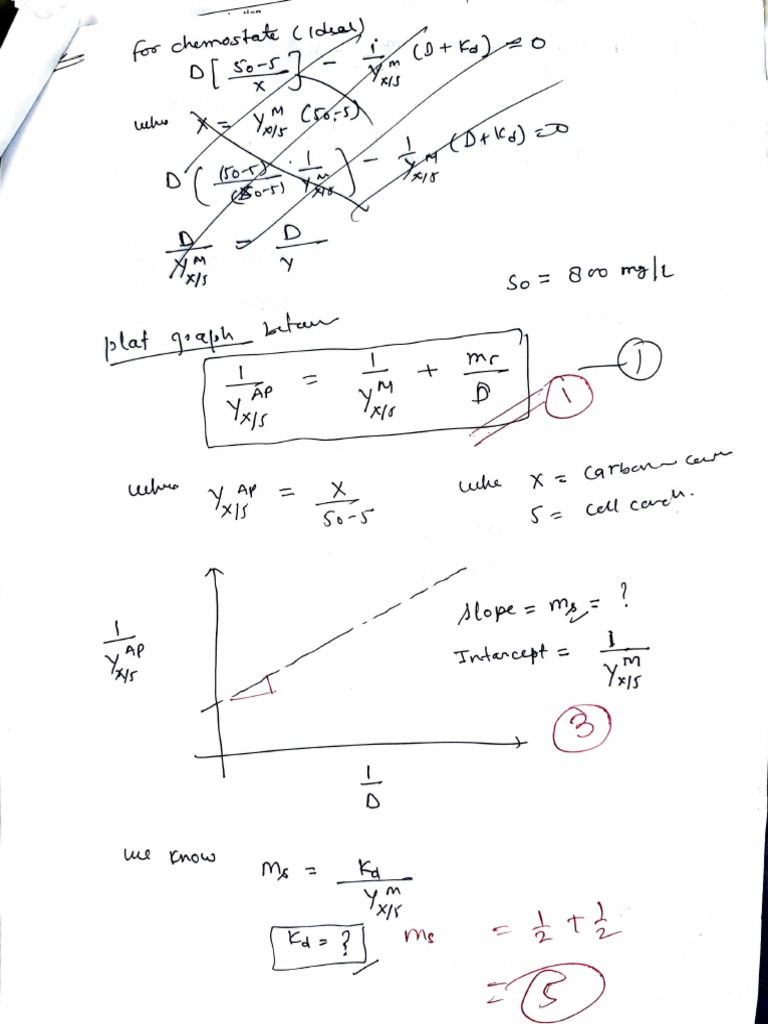 for chemostate (Ideal)
D[ (So-S)/X ] - 1/Y^M_x/s (D + Kd) = 0
X = Y^M_x/s (So-S)
D( (So-S)/(So-S) · 1/Y^M_x/s ) - 1/Y^M_x/s (D + Kd) = 0
D/Y^M_x/s = D/Y
So = 800 mg/L
plat graph betwen
1/Y^AP_x/s = 1/Y^M_x/s + ms/D
1
1
where Y^AP_x/s = X/(So-S)
X = Carbon
S = cell conc.
1/Y^AP_x/s
Slope = ms = ?
Intercept = 1/Y^M_x/s
3
1/D
we know ms = Kd/Y^M_x/s
Kd = ? ms = 1/2 + 1/2
= 5